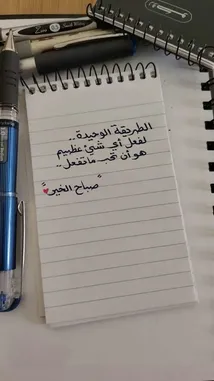 الطريقة الوحيدة..
لفعل أي شئ عظيم
هو أن تحب ما تفعل..
صباح الخير